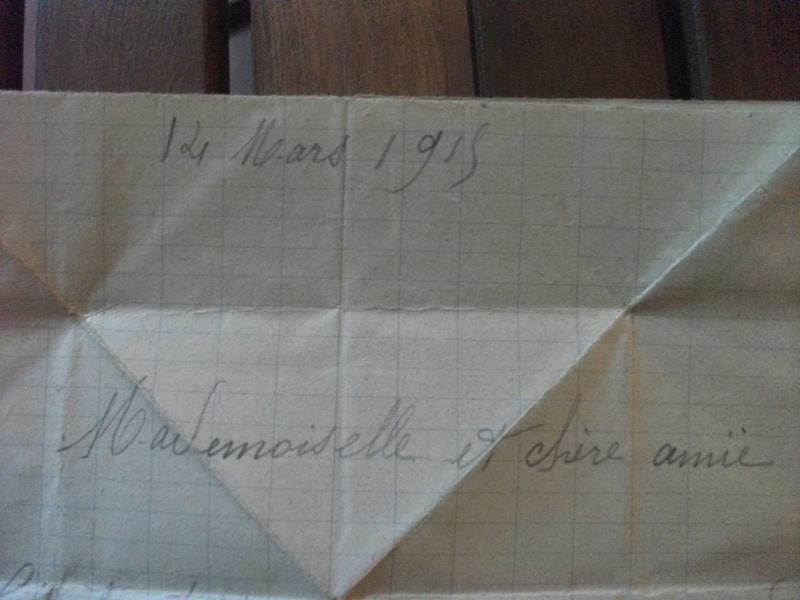 14 Mars 1915
Mademoiselle et chère amie